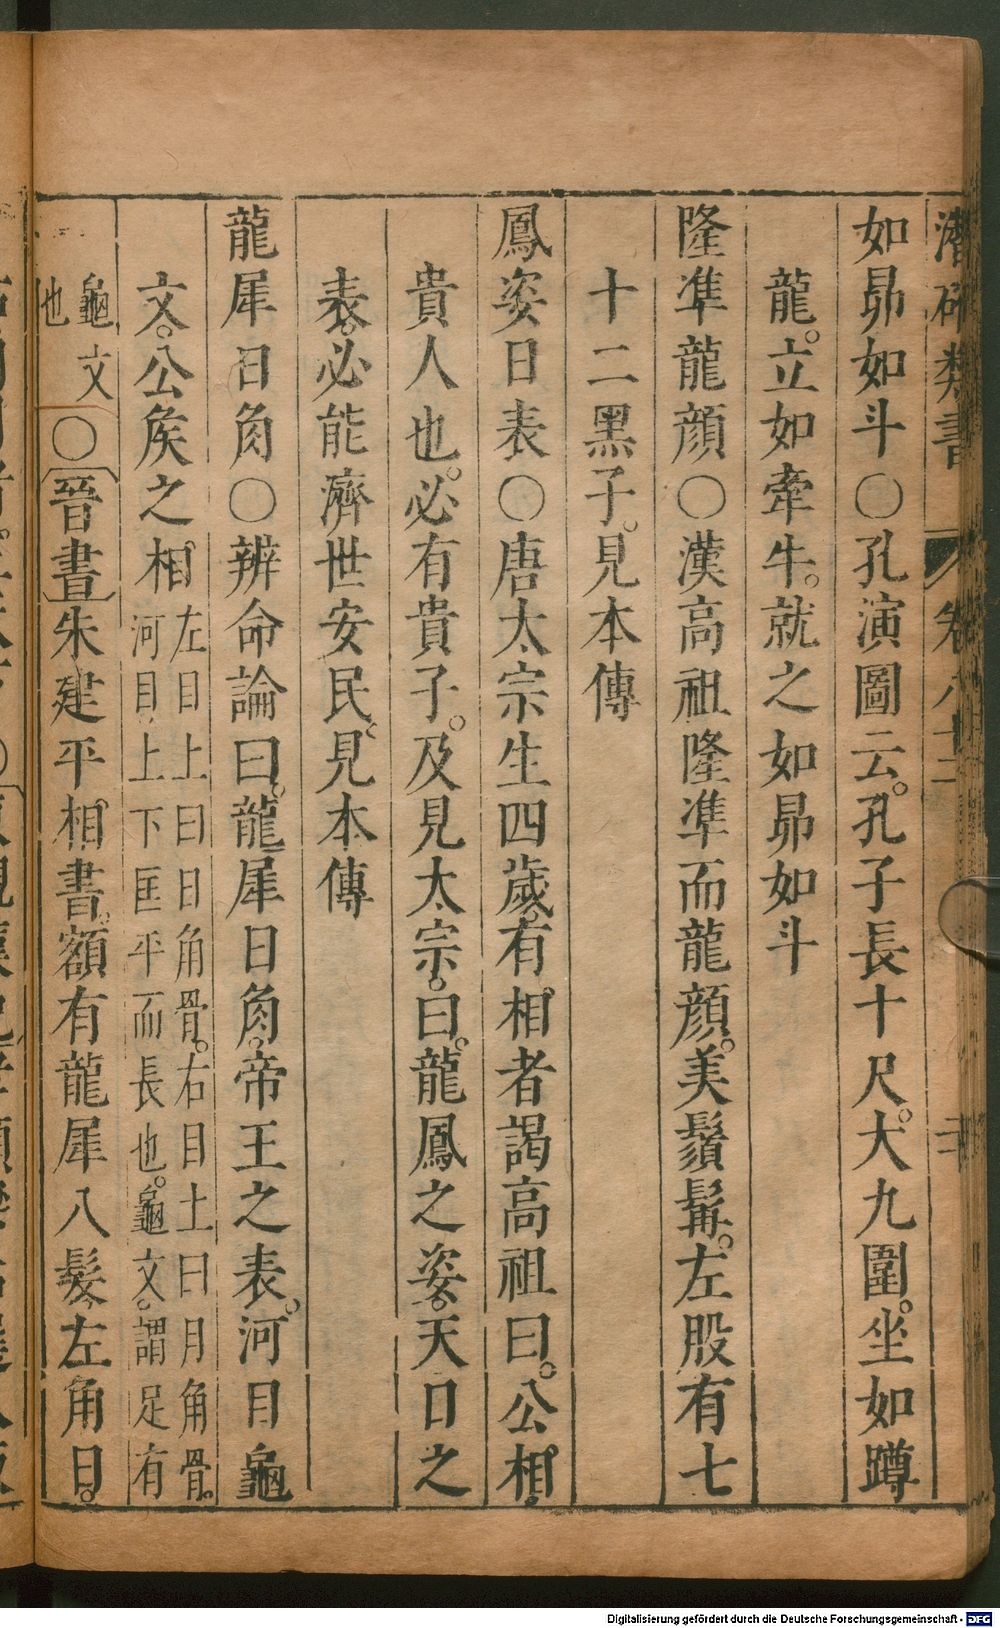 潛確類書 卷八十二
如昴如斗○孔演圖云。孔子長十尺。大九圍。坐如蹲
龍。立如牽牛。就之如昴如斗
隆準龍顏○漢高祖隆準而龍顏。美鬚髯。左股有七
十二黑子。見本傳
鳳姿日表○唐太宗生四歲。有相者謁高祖曰。公相。
貴人也。必有貴子。及見太宗。曰。龍鳳之姿。天日之
表。必能濟世安民。見本傳
龍犀日角○辨命論曰。龍犀日角。帝王之表。河目龜
文。公矦之相左目上曰日角骨。右目上曰月角骨。
河目上下匡平而長也。龜文。謂足有
龜文
也○晉書朱建平相書。額有龍犀八髮。左角日。
Digitalisierung gefördert durch die Deutsche Forschungsgemeinschaft - DFG